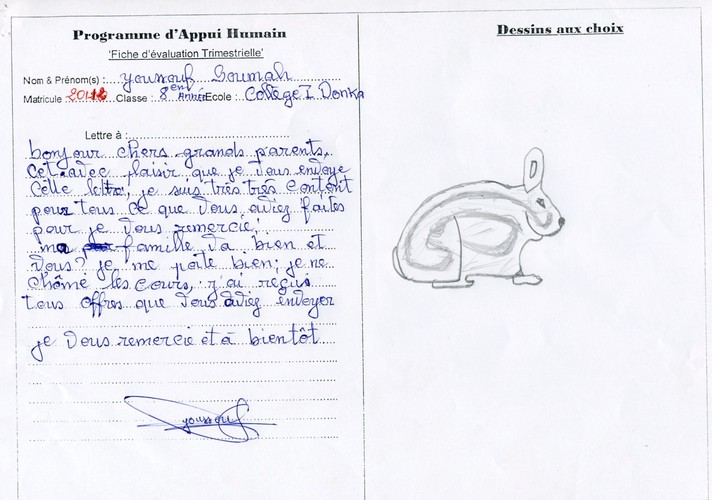 Programme d'Appui Humain
'Fiche d'évaluation Trimestrielle'
Nom & Prénom(s) : Youssouf Soumah
Matricule : 20412 Classe : 8 em Année Ecole : Collège I Donka
Lettre à :
bonjour chers grands parents,
Cet avec plaisir que je vous envoye
Cette lettre, je suis très très content
pour tous ce que vous aviez faites
pour je vous remercie!
ma famille va bien et
vous? je me porte bien; je ne
chôme les cours, j'ai reçus
tous offres que vous aviez envoyer
je vous remercie et à bientôt
youssouf
Dessins aux choix